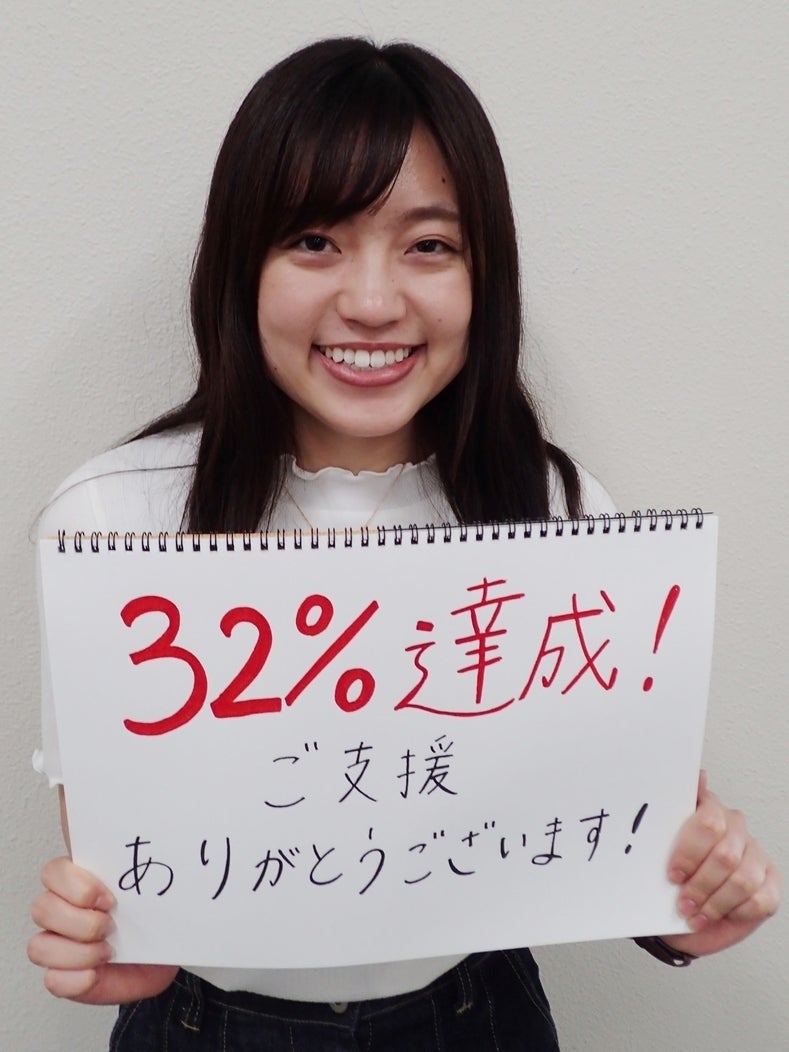 32%達成!
ご支援
ありがとうございます!